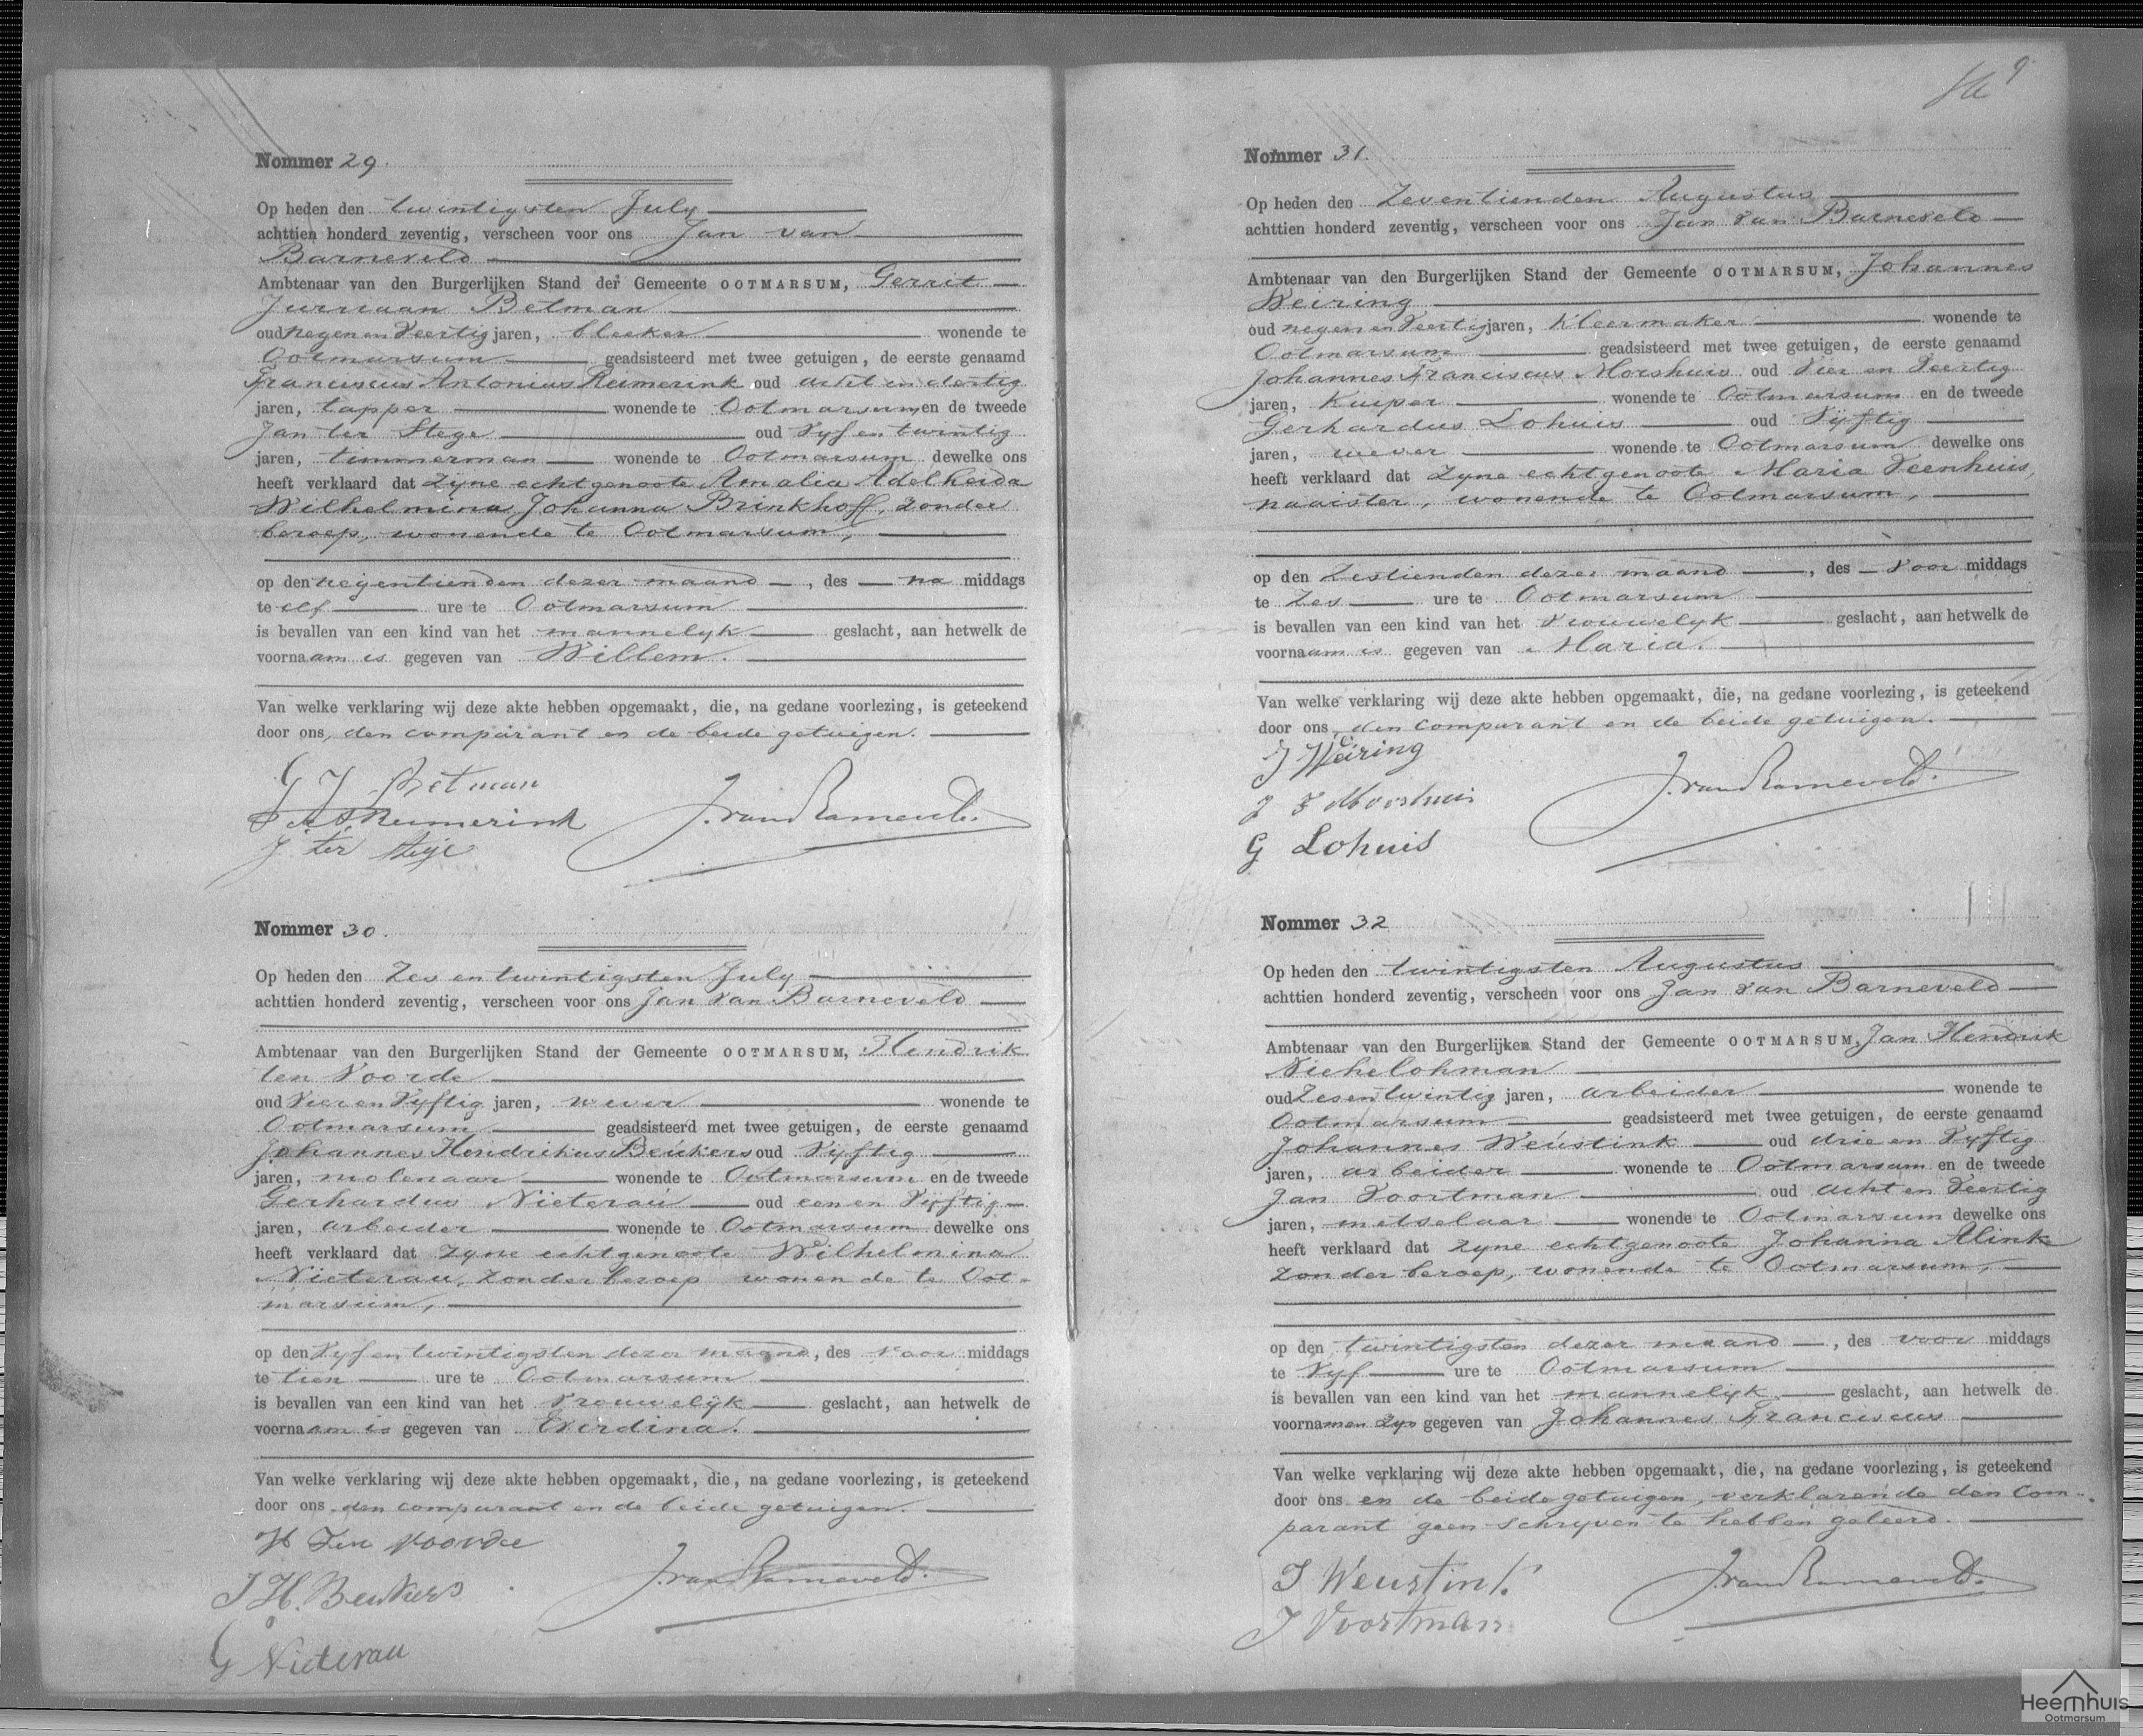 Nommer 29.
Op heden den twintigsten July
achttien honderd zeventig, verscheen voor ons Jan van
Barneveld
Ambtenaar van den Burgerlijken Stand der Gemeente OOTMARSUM, Gerrit
Jurriaan Betman
oud negen en veertig jaren, bleeker wonende te
Ootmarsum geadsisteerd met twee getuigen, de eerste genaamd
Franciscus Antonius Reimerink oud acht en dertig
jaren, tapper wonende te Ootmarsum en de tweede
Jan ter Stege oud vyf en twintig
jaren, timmerman wonende te Ootmarsum dewelke ons
heeft verklaard dat zyne echtgenoote Amalia Adelheida
Wilhelmina Johanna Brinkhoff, zonder
beroep, wonende te Ootmarsum,
op den negentienden dezer maand, des na middags
te elf ure te Ootmarsum
is bevallen van een kind van het mannelyk geslacht, aan hetwelk de
voornaam is gegeven van Willem.
Van welke verklaring wij deze akte hebben opgemaakt, die, na gedane voorlezing, is geteekend
door ons, den comparant en de beide getuigen.
G J Betman
F A Reimerink J. van Barneveld.
J ter Stege
Nommer 30.
Op heden den Zes en twintigsten July
achttien honderd zeventig, verscheen voor ons Jan van Barneveld
Ambtenaar van den Burgerlijken Stand der Gemeente OOTMARSUM, Hendrik
ten Voorde
oud vier en vyftig jaren, wever wonende te
Ootmarsum geadsisteerd met twee getuigen, de eerste genaamd
Johannes Hendrikus Beukers oud vyftig
jaren, molenaar wonende te Ootmarsum en de tweede
Gerhardus Nieterau oud een en vyftig
jaren, arbeider wonende te Ootmarsum dewelke ons
heeft verklaard dat zyne echtgenoote Wilhelmina
Nieterau, zonder beroep wonende te Oot-
marsum,
op den vyf en twintigsten dezer maand, des voor middags
te tien ure te Ootmarsum
is bevallen van een kind van het vrouwelyk geslacht, aan hetwelk de
voornaam is gegeven van Everdina.
Van welke verklaring wij deze akte hebben opgemaakt, die, na gedane voorlezing, is geteekend
door ons den comparant en de beide getuigen.
H Ten Voorde
J H. Beukers J. van Barneveld.
G Nieterau
9
Nommer 31.
Op heden den Zeventienden Augustus
achttien honderd zeventig, verscheen voor ons Jan van Barneveld
Ambtenaar van den Burgerlijken Stand der Gemeente OOTMARSUM, Johannes
Weiring
oud negen en veertig jaren, kleermaker wonende te
Ootmarsum geadsisteerd met twee getuigen, de eerste genaamd
Johannes Franciscus Morshuis oud vier en veertig
jaren, kuiper wonende te Ootmarsum en de tweede
Gerhardus Lohuis oud vyftig
jaren, wever wonende te Ootmarsum dewelke ons
heeft verklaard dat zyne echtgenoote Maria Veenhuis,
naaister, wonende te Ootmarsum,
op den Zestienden dezer maand, des voor middags
te Zes ure te Ootmarsum
is bevallen van een kind van het vrouwelyk geslacht, aan hetwelk de
voornaam is gegeven van Maria.
Van welke verklaring wij deze akte hebben opgemaakt, die, na gedane voorlezing, is geteekend
door ons, den comparant en de beide getuigen.
J Weiring
J F Morshuis J. van Barneveld.
G Lohuis
Nommer 32
Op heden den twintigsten Augustus
achttien honderd zeventig, verscheen voor ons Jan van Barneveld
Ambtenaar van den Burgerlijken Stand der Gemeente OOTMARSUM, Jan Hendrik
Nichelohman
oud Zes en twintig jaren, arbeider wonende te
Ootmarsum geadsisteerd met twee getuigen, de eerste genaamd
Johannes Weustink oud drie en vyftig
jaren, arbeider wonende te Ootmarsum en de tweede
Jan Voortman oud acht en veertig
jaren, metselaar wonende te Ootmarsum dewelke ons
heeft verklaard dat zyne echtgenoote Johanna Alink
zonder beroep, wonende te Ootmarsum,
op den twintigsten dezer maand, des voor middags
te vyf ure te Ootmarsum
is bevallen van een kind van het mannelyk geslacht, aan hetwelk de
voornamen zyn gegeven van Johannes Franciscus
Van welke verklaring wij deze akte hebben opgemaakt, die, na gedane voorlezing, is geteekend
door ons en de beide getuigen, verklarende den com-
parant geen schryven te hebben geleerd.
J Weustink J. van Barneveld.
J Voortman
Heemhuis
Ootmarsum